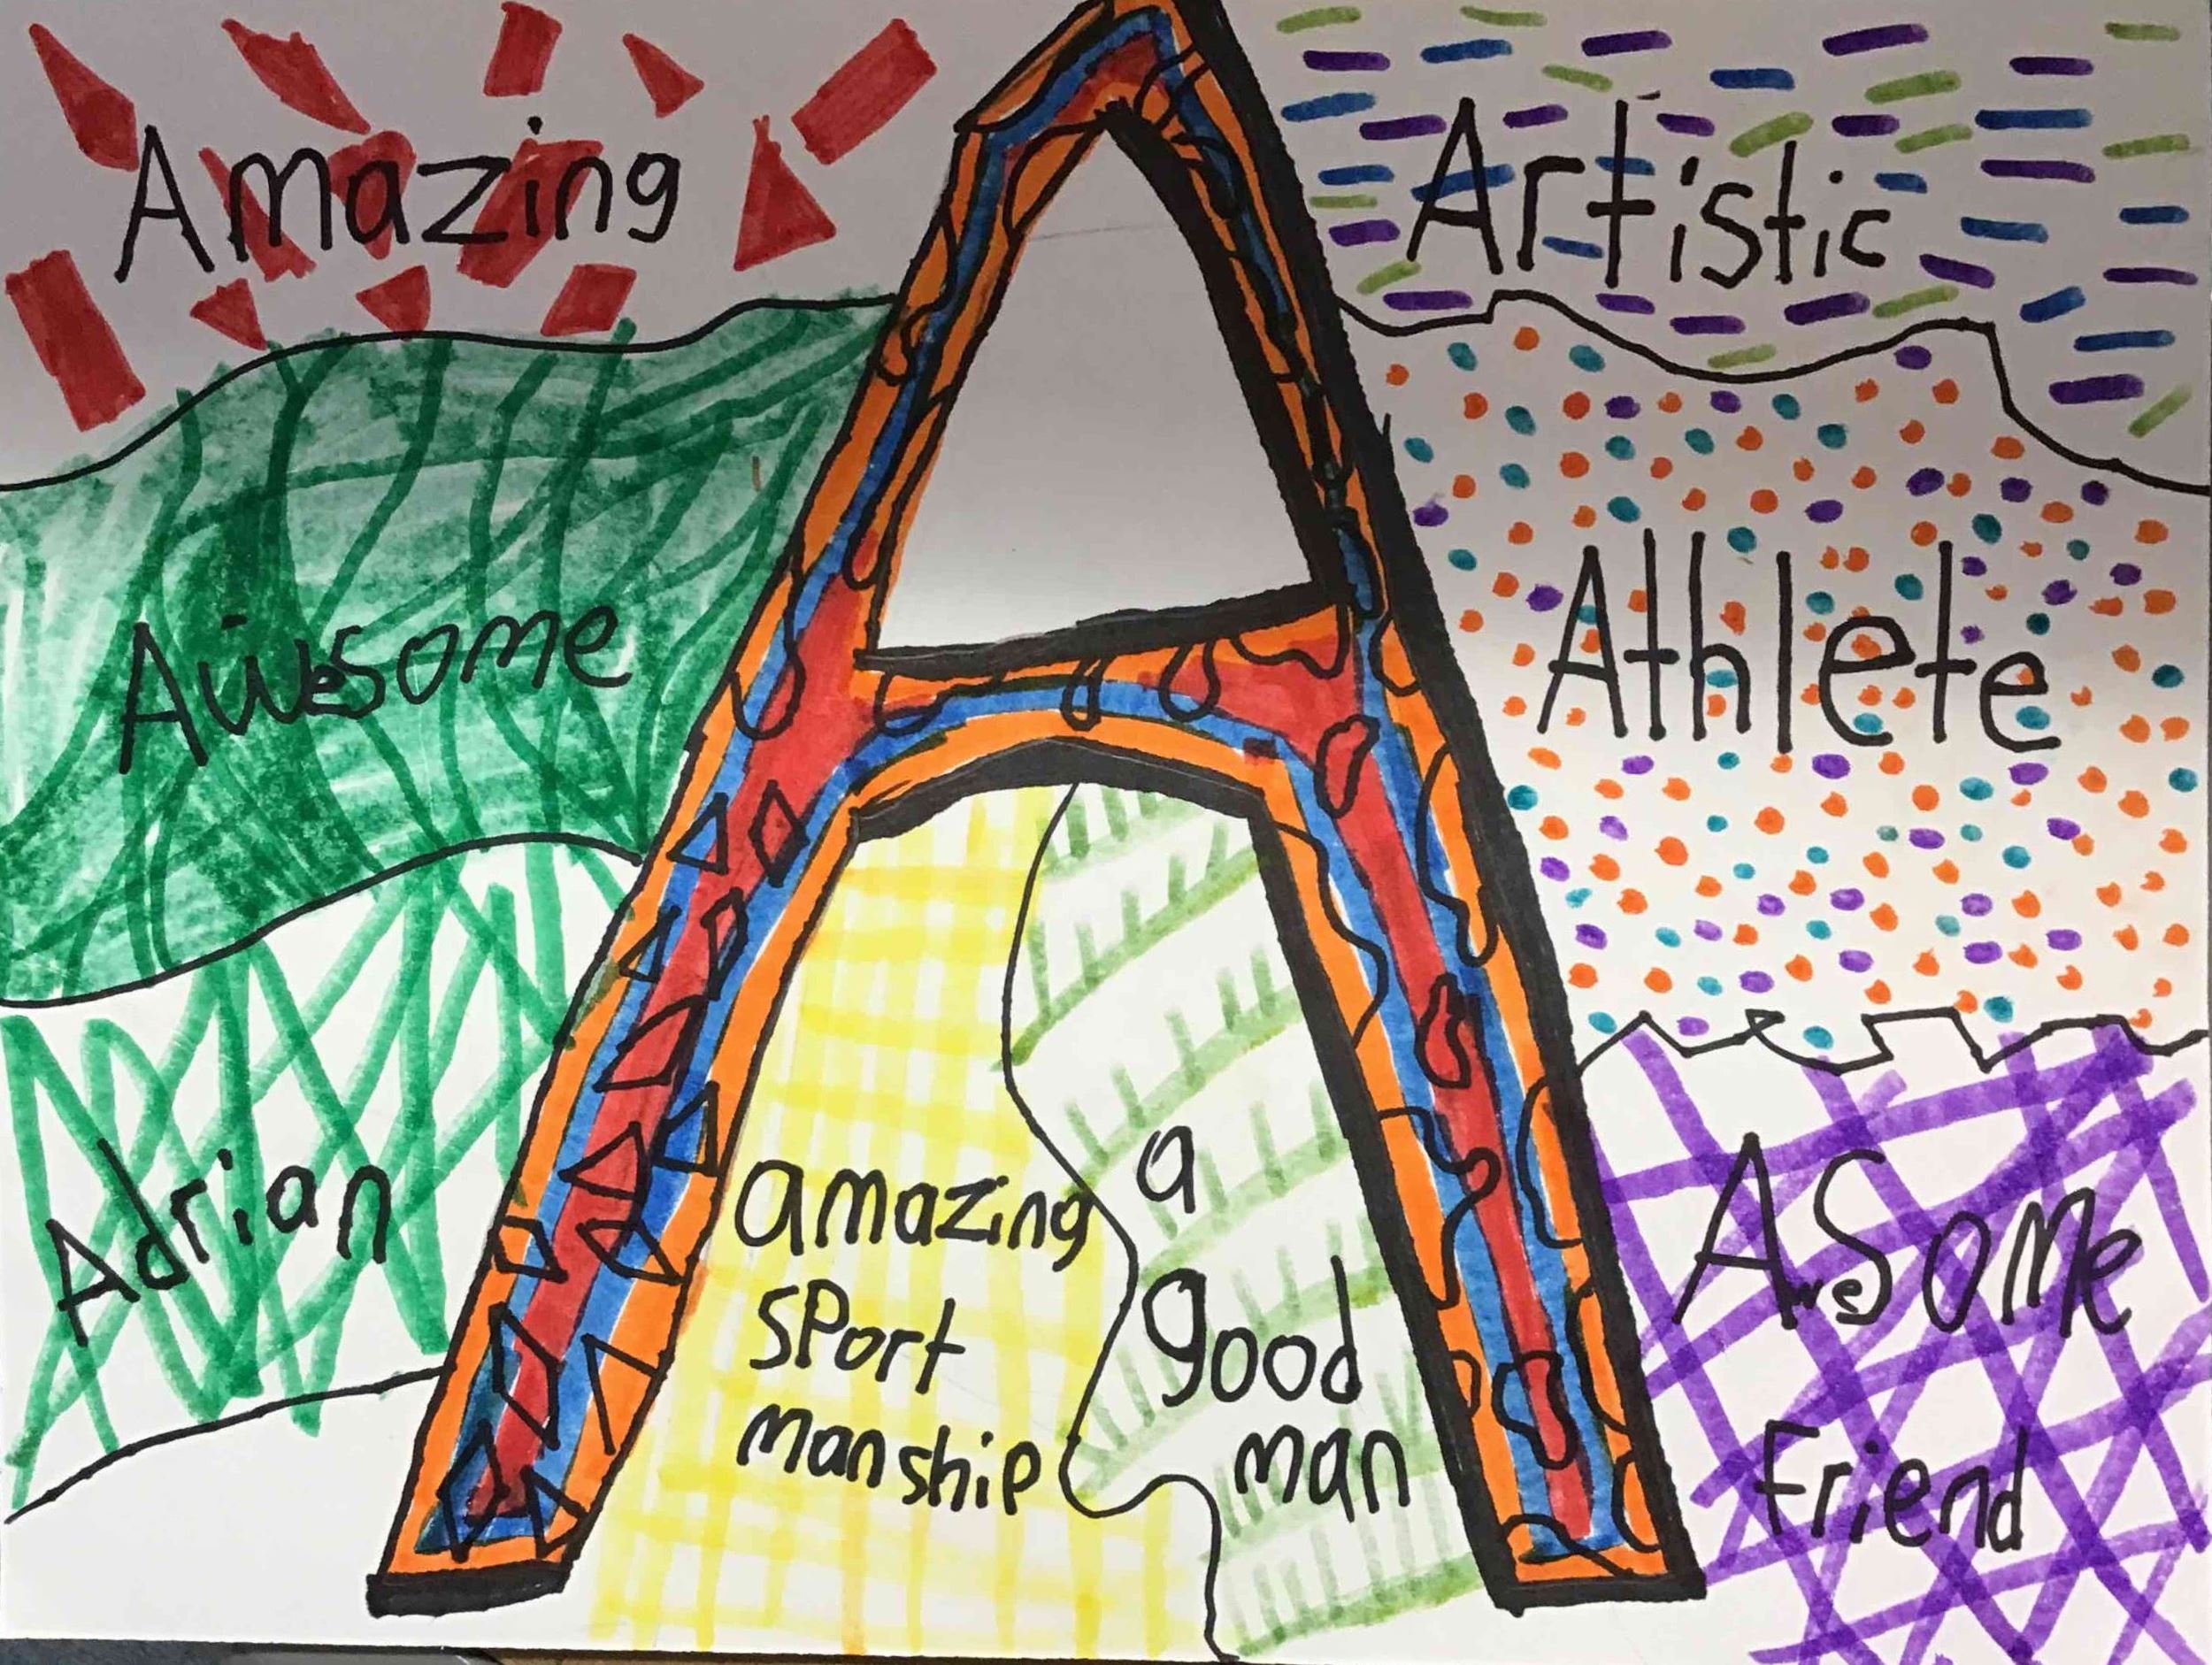 Amazing
Awesome
Adrian
A
amazing
sport
manship
a
good
man
Artistic
Athlete
Awesome
Friend